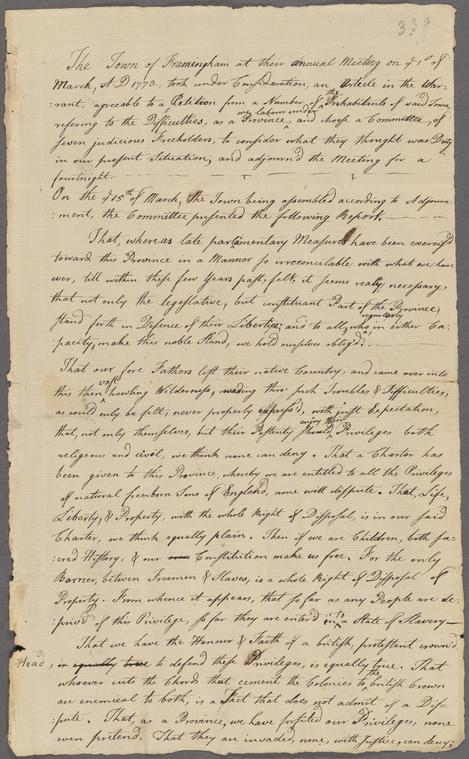 339
The Town of Framingham at their annual Meeting on ye 1st of
March, A.D 1773. took under Consideration, an Article in the War-
:rant; agreeable to a Petition from a Number of the Inhabitants of said Town,
refering to the Difficulties, as a Province we labour under, and chose a Committee, of
seven judicious Freeholders, to consider what they thought was Duty
in our present Situation; and adjourn'd the Meeting for a
fourtnight.
On the ye 15th of March, the Town being assembled according to Adjourn-
:ment, the Committee presented the following Report.
That, whereas late parliamentary Measures have been exercis'd
toward this Province in a Manner so irreconcilable with what we have
ever, till within these few Years past, felt; it seems really necessary,
that not only the legeslative, but constituant Part of the Province,
stand forth in Defence of their Liberties; and to all, who regularly in either Ca-
:pacity, make this noble Stand, we hold ourselves oblig'd.
That our fore Fathers left their native Country, and came over into
this then vast howling Wilderness, wading thro such Troubles & Difficulties,
as could only be felt; never properly express'd, with just Expectation,
that, not only themselves, but their Posterity should enjoy their Privileges both
religeous and civil, we think none can deny. That a Charter has
been given to this Province, whereby we are entitled to all the Privileges
of natural freeborn Sons of England, none will dispute. That, Life,
Liberty, & Property, with the whole Right of Disposal, is in our said
Charter, we think equally plain. Then if we are Children, both sa-
:cred History, & our own Constitution make us free. For the only
Barrier, between Freemen & Slaves, is a whole Right of Disposal of
Property. From whence it appears, that so far as any People are de-
:priv'd of this Privilege, so far they are enter'd into a State of Slavery—
That we have the Honner & Faith of a british, protestant crown'd
Head, is equally true to defend these Privileges, is equally true. That
whoever cuts the Chords that cement the Colonies to the british Crown
are enemical to both, is a Fact that does not admit of a Dis-
:pute. That, as a Province, we have forfited our Privileges, none
even pretend. That they are invaded, none, with Justice, can deny;